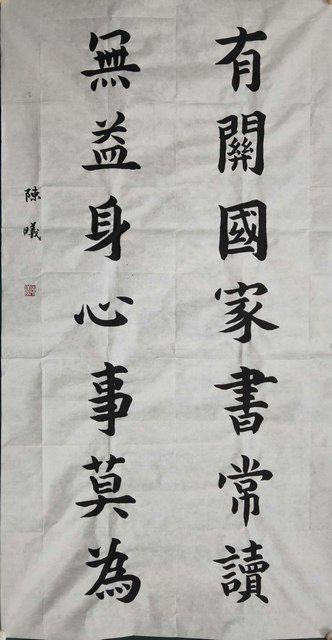 有關國家書常讀
無益身心事莫為
陳曦